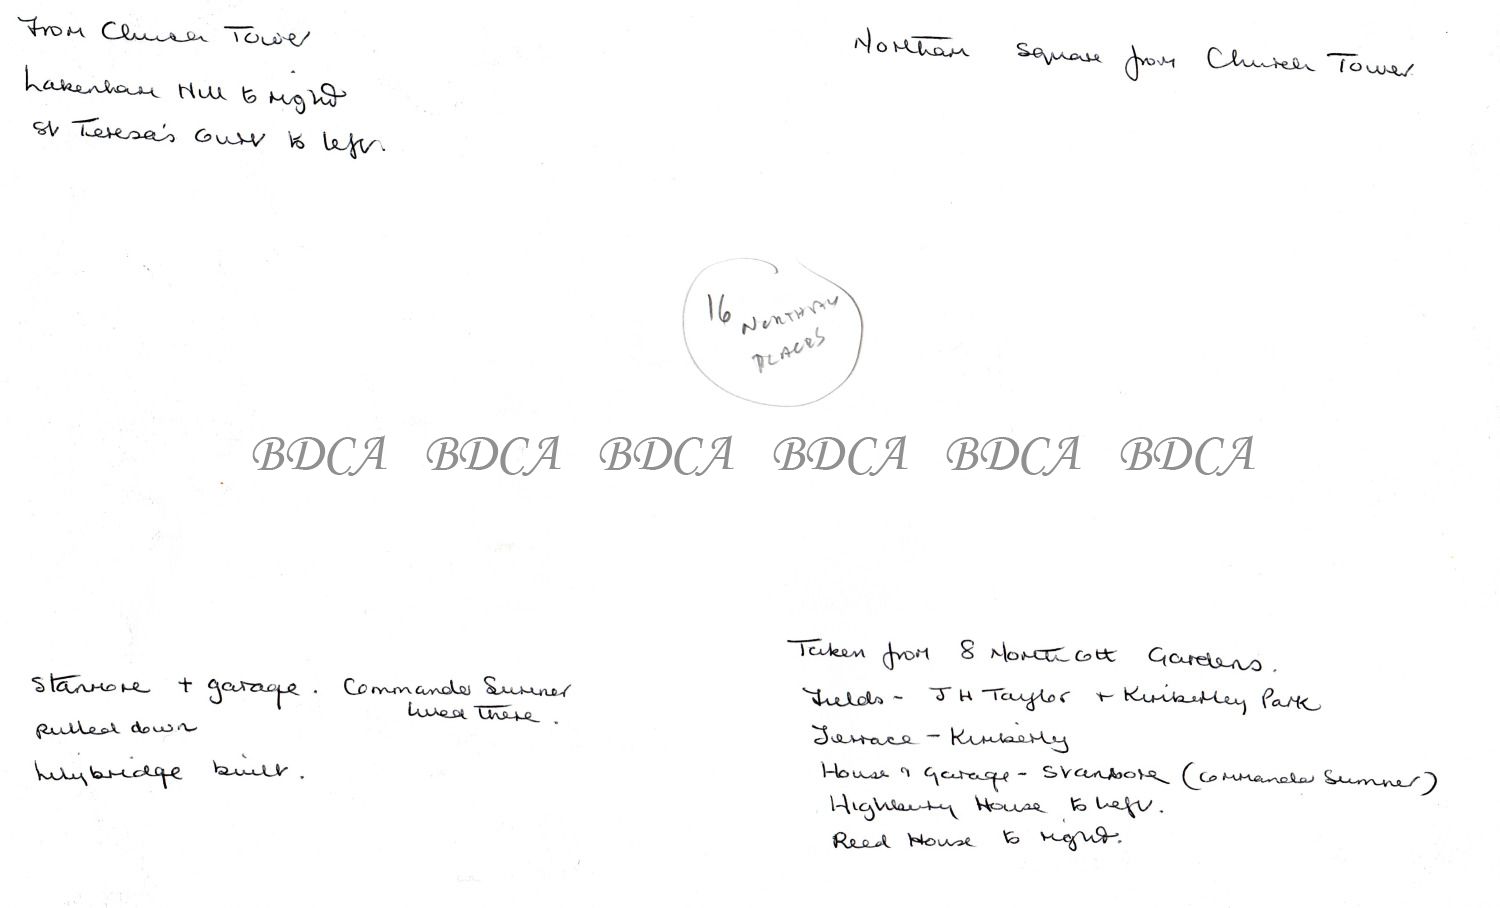 From Church Tower
Lakenham Hill to right
St Teresa's Court to left.
Northam Square from Church Tower
16 NORTHAM
PLACES
BDCA BDCA BDCA BDCA BDCA BDCA
Stanmore + garage. Commander Sumner
lived there.
pulled down
Lillybridge built.
Taken from 8 Northcott Gardens.
Fields - J H Taylor + Kimberley Park
Terrace - Kimberly
House & garage - Stanmore (Commander Sumner)
Highbury House to left.
Reed House to right.